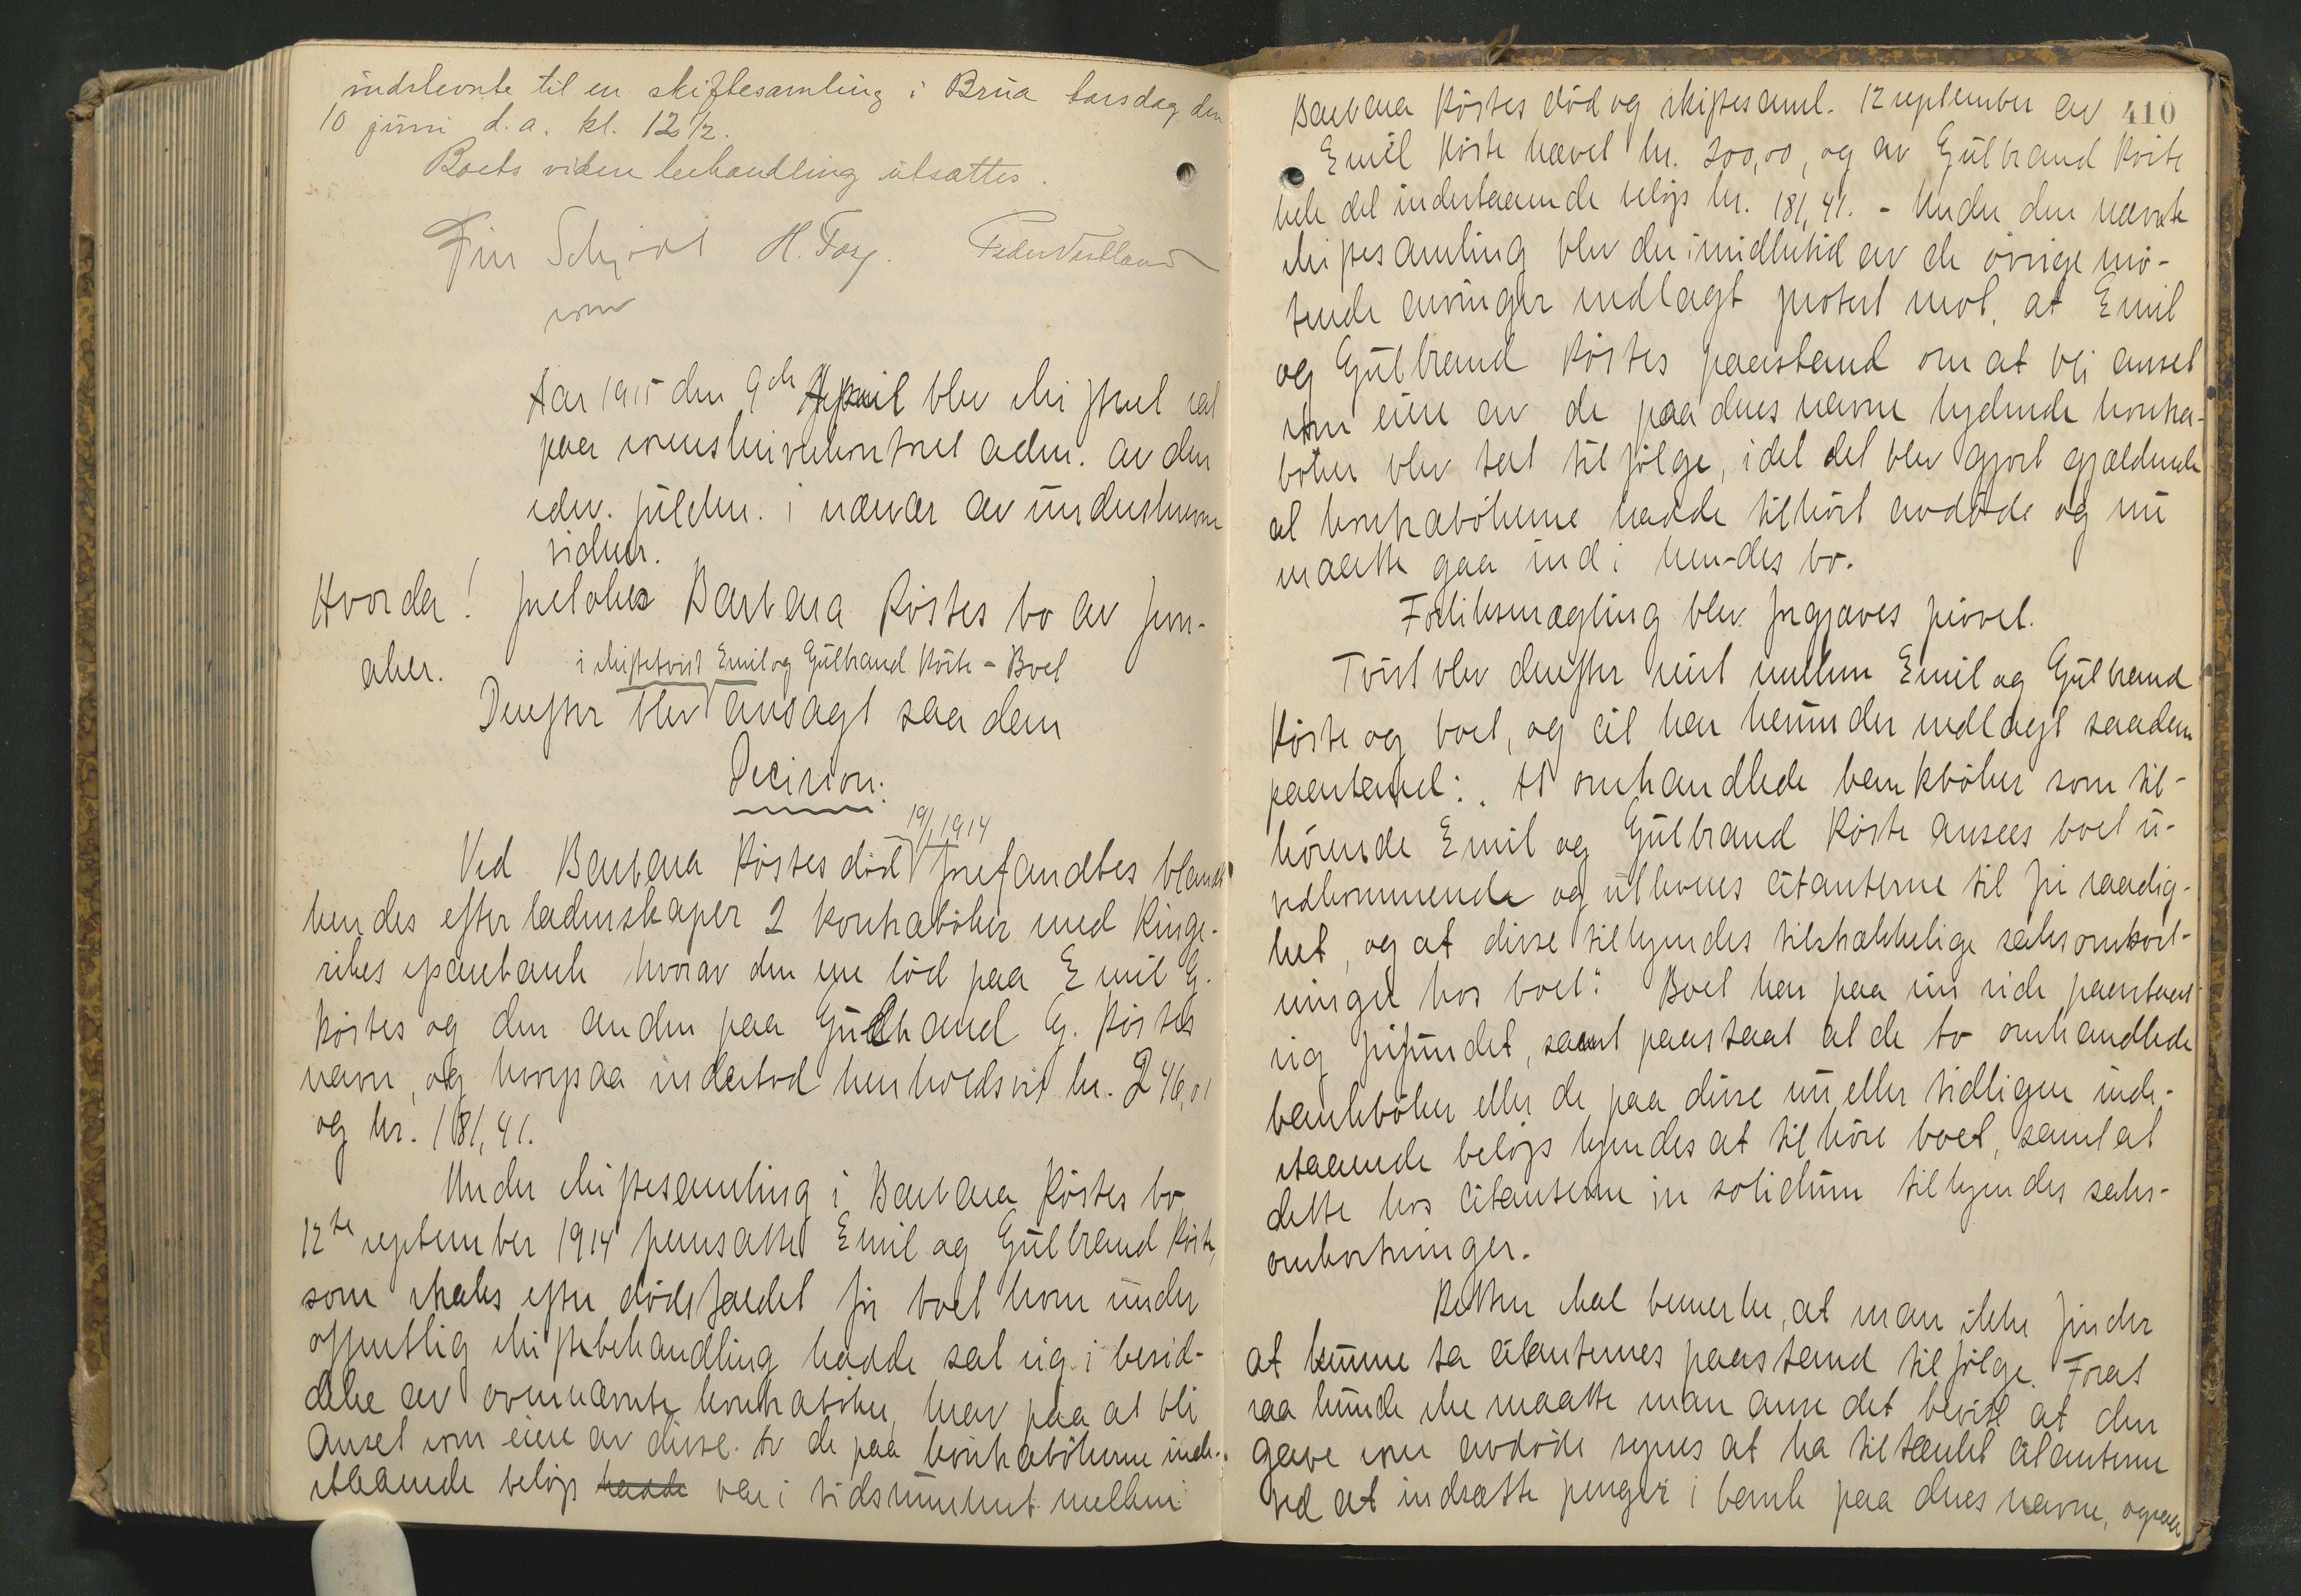 indstevnte til en skiftesamling i Brua torsdag den
10 juni d.a. kl. 12 1/2.
Boets videre behandling utsattes.
Finn Schjödt H. Fosz. Peder Vestland
som
Aar 1915 den 9de April blev skifteret sat
paa sorenskriverkontoret adm. av den
edsv. fuldm. i nærvær av underskrevne
vidner.
Hvorda! foretokes Barbara Köstes bo av Jevn-
aker.
i skiftetvist Emil og Gulbrand Köste - Boet
Derefter blev avsagt saadan
Decision:
19/1 1914
Ved Barbara Köstes död forefandtes blandt
hendes efterladenskaper 2 kontraböker med Ringe-
rikes sparebank hvorav den ene löd paa Emil G.
Köstes og den anden paa Gulbrand G. Köstes
navn, og hvorpaa indestod henholdsvis kr. 246,01
og kr. 181,41.
Under skiftesamling i Barbara Köstes bo
12te september 1914 fremsatte Emil og Gulbrand Köste,
som straks efter dödsfaldet för boet kom under
offentlig skiftebehandling hadde sat sig i besid-
delse av ovennævnte kontraböker, krav paa at bli
anset som eiere av disse. Av de paa kontrabökerne inde-
staaende belöp hadde var i tidsrummet mellem
410
Barbara Köstes död og skiftesaml. 12 september av
Emil Köste hævet kr. 200,00, og av Gulbrand Köste
hele det indestaaende belöp kr. 181,41. - Under den nævnte
skiftesamling blev der imidlertid av de övrige mö-
tende arvinger nedlagt protest mot, at Emil
og Gulbrand Köstes paastand om at bli anset
som eiere av de paa deres navne lydende kontra-
böker blev tat tilfölge, idet det blev gjort gjældende
at kontrabökerne hadde tilhört avdöde og nu
maatte gaa ind i hendes bo.
Forliksmægling blev forgjæves prövet.
Tvist blev derefter reist mellem Emil og Gulbrand
Köste og boet, og cit har herunder nedlagt saadan
paastand: "At omhandlede bankböker som til-
hörende Emil og Gulbrand Köste ansees boet u-
vedkommende og utleveres citanterne til fri raadig-
het, og at disse tilkjendes tilstrækkelige saksomkost-
ninger hos boet." Boet har paa sin side paastaat
sig frifundet, samt paastaat at de to omhandlede
bankböker eller de paa disse nu eller tidligere inde-
staaende belöp kjendes at tilhöre boet, samt at
dette hos citanterne in solidum tilkjendes saks-
omkostninger.
Retten skal bemerke, at man ikke finder
at kunne ta citanternes paastand tilfölge. Forat
saa kunde ske maatte man anse det bevist at den
gave som avdöde synes at ha tiltænkt citanterne
ved at indsætte penger i bank paa deres navne, ogsaa